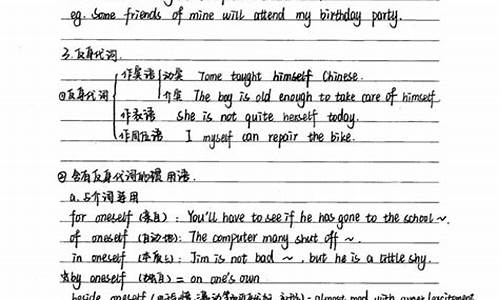 eg. Some friends of mine will attend my birthday party.
3. 反身代词.
作宾语 动宾 Tome taught himself Chinese.
①反身代词 介宾 The boy is old enough to take care of himself.
作表语 She is not quite herself today.
作同位语 I myself can repair the bike.
② 含有反身代词的惯用语.
a. 与介词连用
for oneself (亲自): You'll have to see if he has gone to the school ~.
of oneself (自动地): The computer many shut off ~.
in oneself (本质上): Jim is not bad ~, but he is a little shy.
by oneself (独自) = on one's own
beside oneself almost mad with